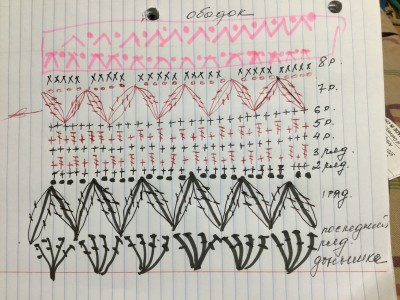 ободок
8 р.
7 р.
6 р.
5 р.
4 р.
3 ряд.
2 ряд.
1 ряд
последний
ряд
донышка